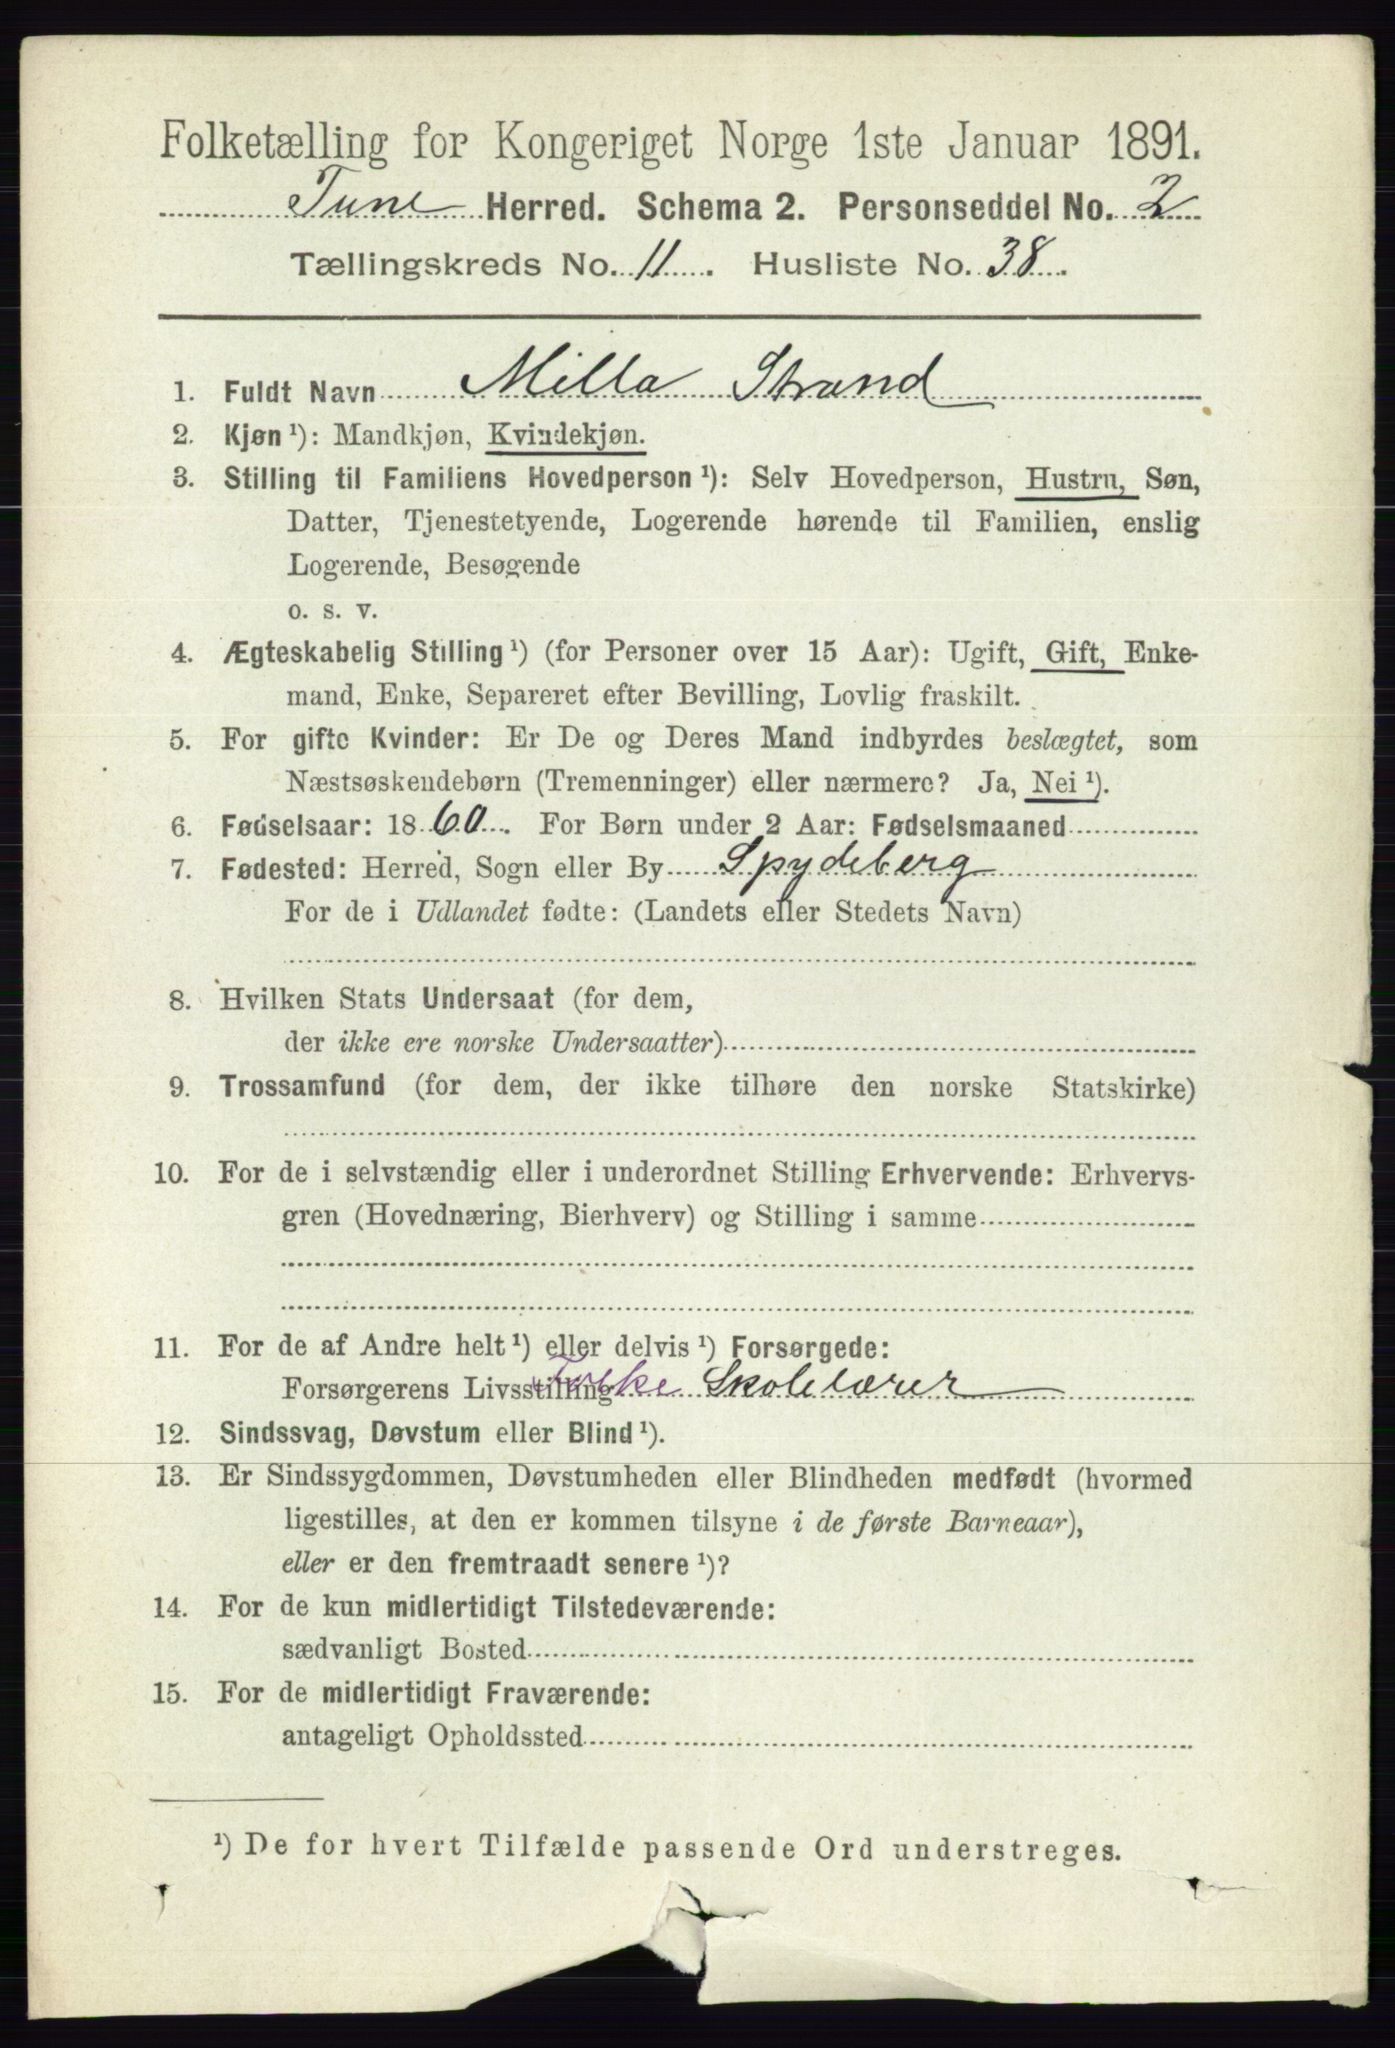 Folketælling for Kongeriget Norge 1ste Januar 1891.
Tune Herred. Schema 2. Personseddel No. 2
Tællingskreds No. 11. Husliste No. 38.
1. Fuldt Navn Milla Strand
2. Kjøn ¹): Mandkjøn, Kvindekjøn.
3. Stilling til Familiens Hovedperson ¹): Selv Hovedperson, Hustru, Søn,
Datter, Tjenestetyende, Logerende hørende til Familien, enslig
Logerende, Besøgende
o. s. v.
4. Ægteskabelig Stilling ¹) (for Personer over 15 Aar): Ugift, Gift, Enke-
mand, Enke, Separeret efter Bevilling, Lovlig fraskilt.
5. For gifte Kvinder: Er De og Deres Mand indbyrdes beslægtet, som
Næstsøskendebørn (Tremenninger) eller nærmere? Ja, Nei ¹).
6. Fødselsaar: 1860. For Børn under 2 Aar: Fødselsmaaned
7. Fødested: Herred, Sogn eller By Spydeberg
For de i Udlandet fødte: (Landets eller Stedets Navn)
8. Hvilken Stats Undersaat (for dem,
der ikke ere norske Undersaatter)
9. Trossamfund (for dem, der ikke tilhøre den norske Statskirke)
10. For de i selvstændig eller i underordnet Stilling Erhvervende: Erhvervs-
gren (Hovednæring, Bierhverv) og Stilling i samme
11. For de af Andre helt ¹) eller delvis ¹) Forsørgede:
Forsørgerens Livsstilling Folke Skolelærer
12. Sindssvag, Døvstum eller Blind ¹).
13. Er Sindssygdommen, Døvstumheden eller Blindheden medfødt (hvormed
ligestilles, at den er kommen tilsyne i de første Barneaar),
eller er den fremtraadt senere ¹)?
14. For de kun midlertidigt Tilstedeværende:
sædvanligt Bosted
15. For de midlertidigt Fraværende:
antageligt Opholdssted
¹) De for hvert Tilfælde passende Ord understreges.